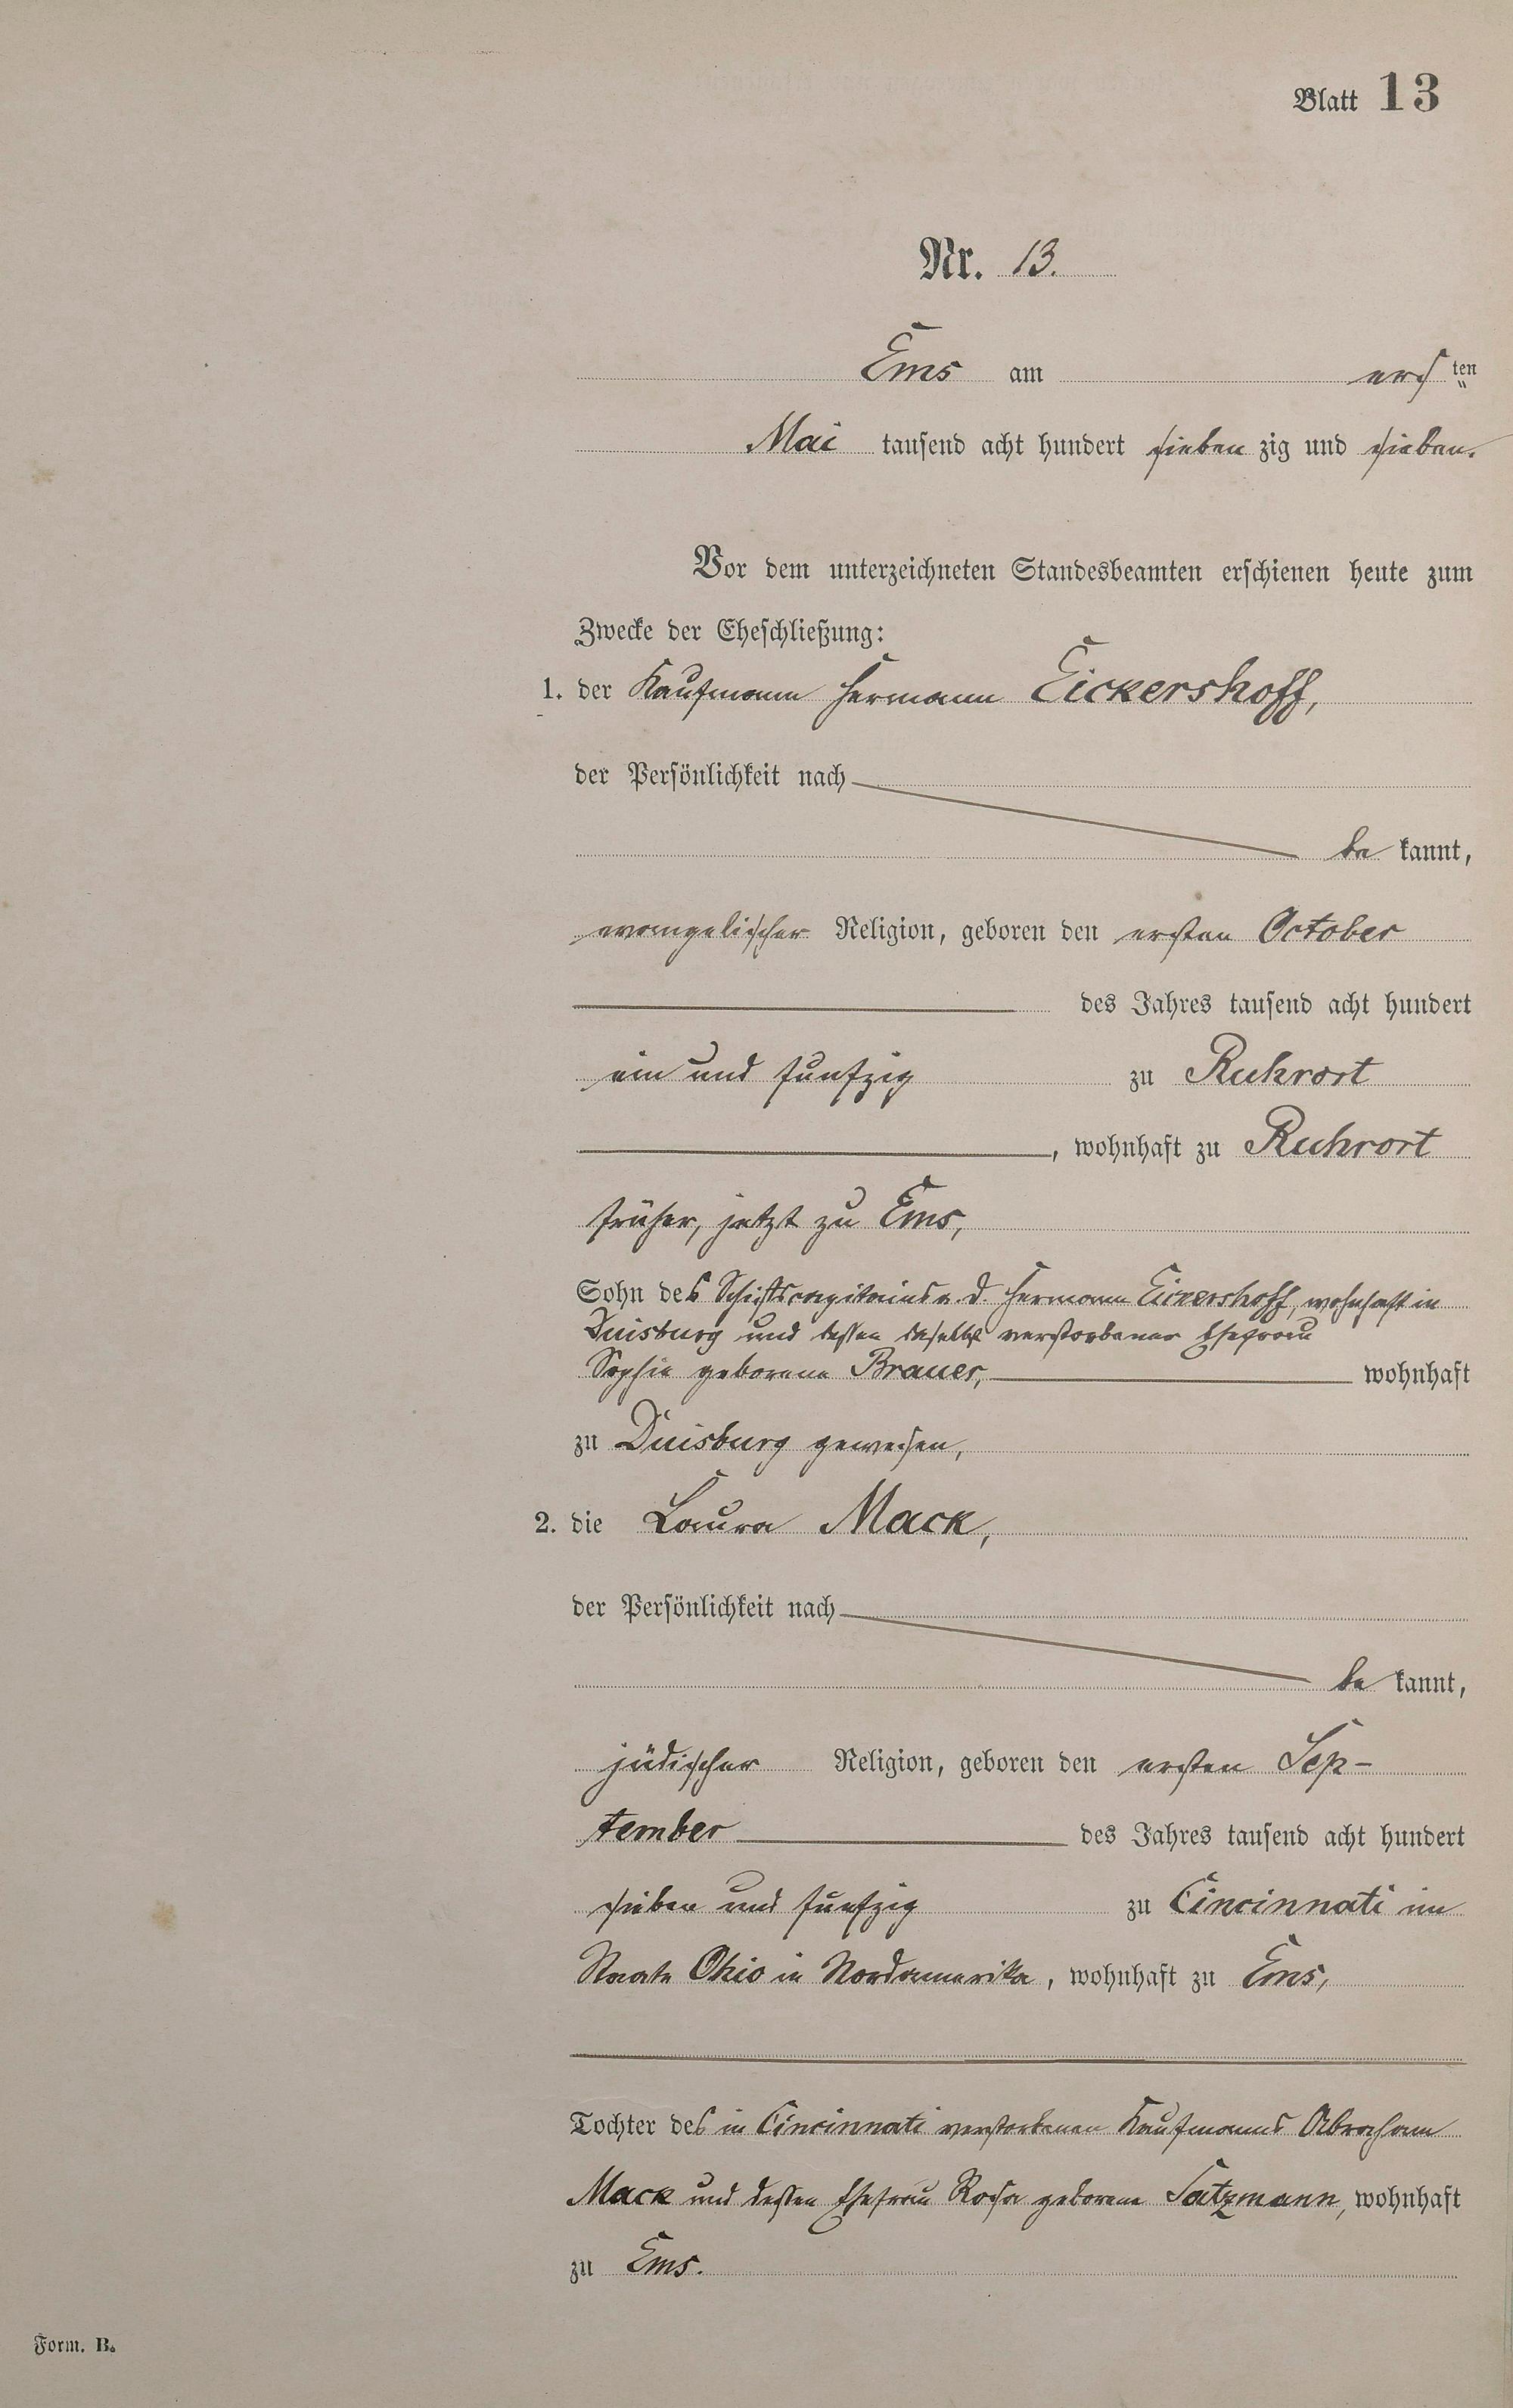 Blatt 13
Nr. 13.
Ems am ersten
Mai tausend acht hundert siebenzig und sieben.
Vor dem unterzeichneten Standesbeamten erschienen heute zum
Zwecke der Eheschließung:
1. der Kaufmann Hermann Eickershoff,
der Persönlichkeit nach
bekannt,
evangelischer Religion, geboren den ersten October
des Jahres tausend acht hundert
ein und funfzig zu Ruhrort
, wohnhaft zu Ruhrort
früher, jetzt zu Ems,
Sohn des Schiffscapitains a. D. Hermann Eickershoff, wohnhaft in
Duisburg und dessen daselbst verstorbener Ehefrau
Sophie geborene Brauer, wohnhaft
zu Duisburg gewesen,
2. die Laura Mack,
der Persönlichkeit nach
bekannt,
jüdischer Religion, geboren den ersten Sep-
tember des Jahres tausend acht hundert
sieben und funfzig zu Cincinnati im
Staate Ohio in Nordamerika, wohnhaft zu Ems,
Tochter des in Cincinnati verstorbenen Kaufmanns Abraham
Mack und dessen Ehefrau Rosa geborene Satzmann, wohnhaft
zu Ems.
Form. B.